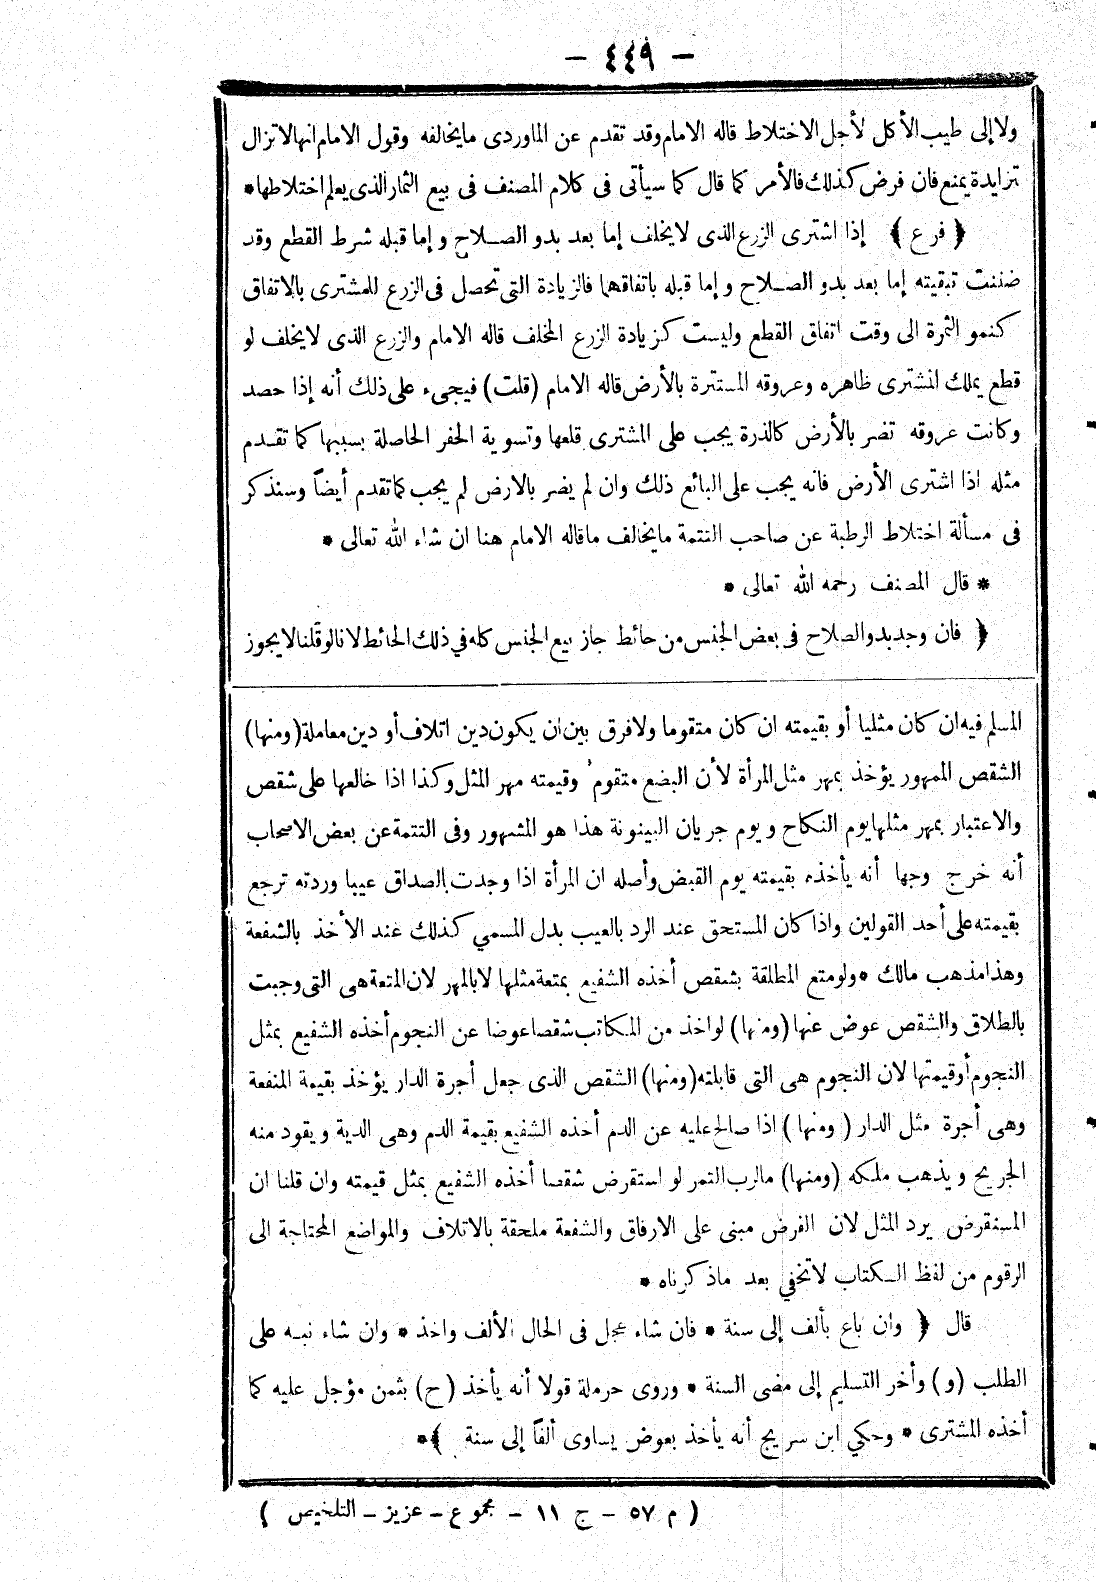 - ٤٤٩ -
ولا إلى طيب الأكل لأجل الاختلاط قاله الامام وقد تقدم عن الماوردى مايخالفه وقول الامام انها لاتزال
تزايدة يمنع فان فرض كذلك فالأمر كما قال كما سيأتى فى كلام المصنف فى بيع الثمار الذى يعلم اختلاطها *
﴿ فرع ﴾ إذا اشترى الزرع الذى لا يخلف إما بعد بدو الصلاح و إما قبله شرط القطع وقد
ضننت تبقيته إما بعد بدو الصلاح و إما قبله باتفاقهما فالزيادة التى تحصل فى الزرع للمشترى بالاتفاق
كنمو الثمرة الى وقت اتفاق القطع وليست كزيادة الزرع المخلف قاله الامام والزرع الذى لا يخلف لو
قطع يملك المشترى ظاهره وعروقه المستترة بالأرض قاله الامام (قلت) فيجىء على ذلك أنه إذا حصد
وكانت عروقه تضر بالأرض كالذرة يجب على المشترى قلعها وتسوية الحفر الحاصلة بسببها كما تقدم
مثله اذا اشترى الأرض فانه يجب على البائع ذلك وان لم يضر بالارض لم يجب كما تقدم أيضاً وسنذكر
فى مسألة اختلاط الرطبة عن صاحب التتمة مايخالف ماقاله الامام هنا ان شاء الله تعالى *
* قال المصنف رحمه الله تعالى *
﴿ فان وجد بدو الصلاح فى بعض الجنس من حائط جاز بيع الجنس كله في ذلك الحائط لانا لو قلنا لايجوز
المسلم فيه ان كان مثليا أو بقيمته ان كان متقوما ولافرق بين ان يكون دين اتلاف أو دين معاملة (ومنها)
الشقص الممهور يؤخذ بمهر مثل المرأة لأن البضع متقوم وقيمته مهر المثل وكذا اذا خالعها على شقص
والاعتبار بمهر مثلها يوم النكاح ويوم جريان البينونة هذا هو المشهور وفى التتمة عن بعض الاصحاب
أنه خرج وجها أنه يأخذه بقيمته يوم القبض وأصله ان المرأة اذا وجدت بالصداق عيبا وردته ترجع
بقيمته على أحد القولين واذا كان المستحق عند الرد بالعيب بدل المسمي كذلك عند الأخذ بالشفعة
وهذا مذهب مالك * ولو متع المطلقة بشقص أخذه الشفيع بمتعة مثلها لا بالمهر لان المتعة هى التى وجبت
بالطلاق والشقص عوض عنها (ومنها) لو اخذ من المكاتب شقصا عوضا عن النجوم أخذه الشفيع بمثل
النجوم أو قيمتها لان النجوم هى التى قابلته (ومنها) الشقص الذى جعل أجرة الدار يؤخذ بقيمة المنفعة
وهى أجرة مثل الدار (ومنها) اذا صالح عليه عن الدم أخذه الشفيع بقيمة الدم وهى الدية ويقود منه
الجريح ويذهب ملكه (ومنها) مالرب التمر لو استقرض شقصا أخذه الشفيع بمثل قيمته وان قلنا ان
المستقرض يرد المثل لان القرض مبنى على الارفاق والشفعة ملحقة بالاتلاف والمواضع المحتاجة الى
الرقوم من لفظ الكتاب لاتخفي بعد ماذكرناه *
قال ﴿ وان باع بألف إلى سنة * فان شاء عجل فى الحال الألف واخذ * وان شاء نبه على
الطلب (و) وأخر التسليم إلى مضى السنة * وروى حرملة قولا أنه يأخذ (ح) بثمن مؤجل عليه كما
أخذه المشترى * وحكي ابن سريج أنه يأخذ بعوض يساوى ألفاً إلى سنة ﴾ *
( م ٥٧ - ج ١١ - مجموع - عزيز - التلخيص )